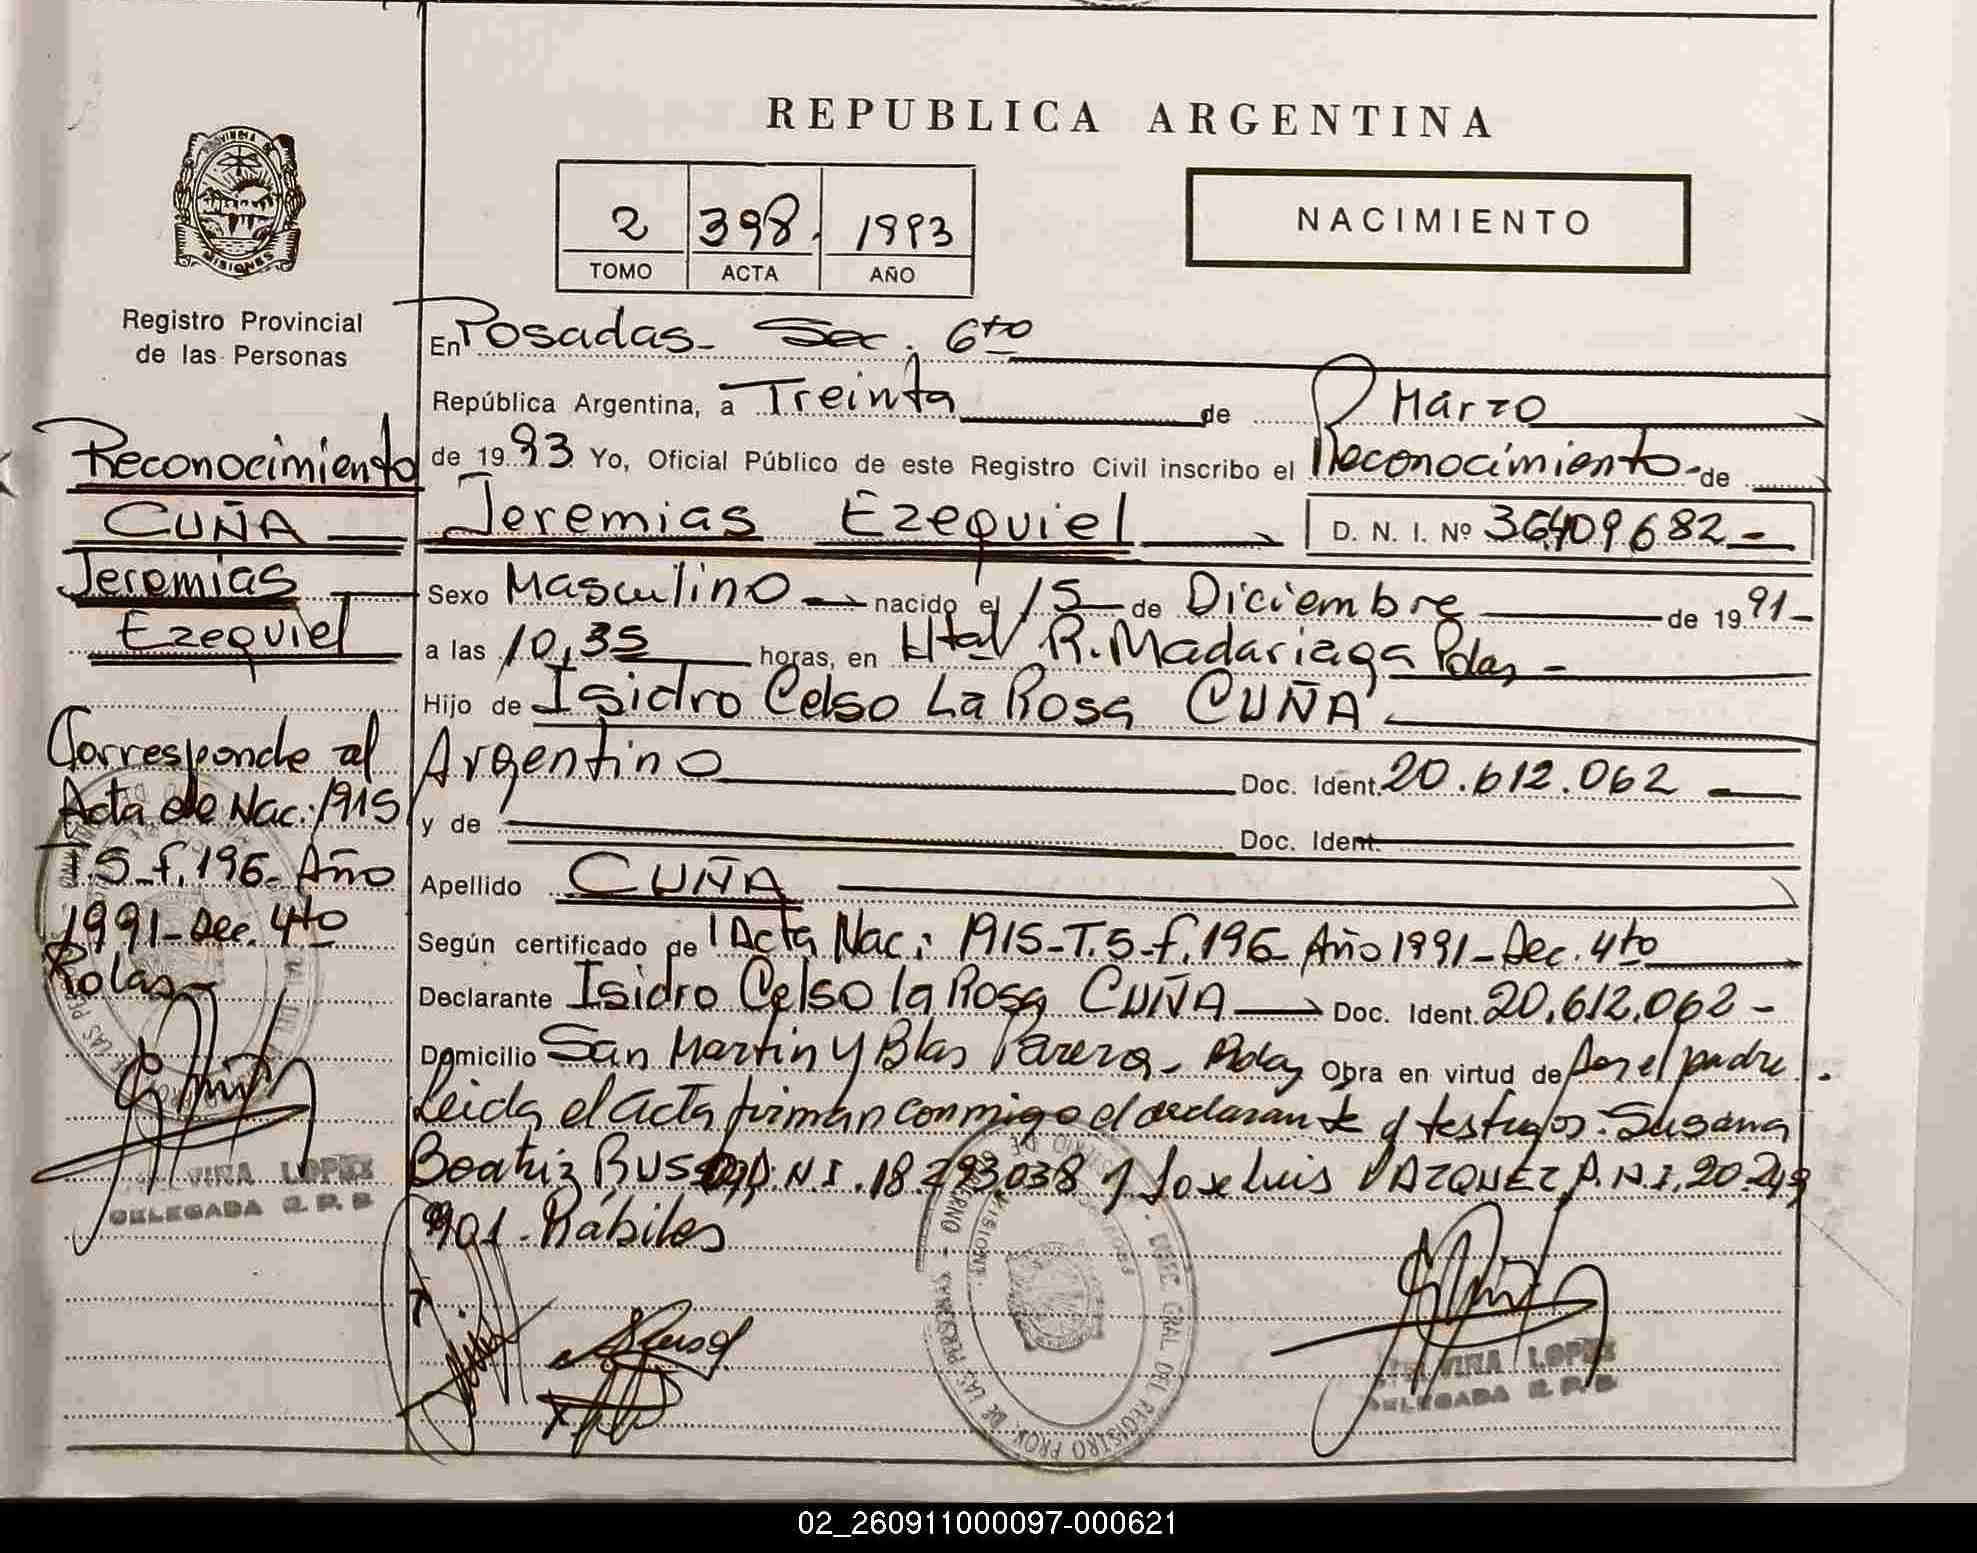 REPUBLICA ARGENTINA
PROVINCIA DE
MISIONES
Registro Provincial
de las Personas
2 398. 1993
TOMO ACTA AÑO
NACIMIENTO
En Posadas - Sec. 6to
República Argentina, a Treinta de Marzo
de 1993 Yo, Oficial Público de este Registro Civil inscribo el Reconocimiento de
Jeremias Ezequiel D. N. I. Nº 36.409682-
Sexo Masculino nacido el 15 de Diciembre de 1991-
a las 10,35 horas, en Htal R. Madariaga Pdas -
Hijo de Isidro Celso La Rosa CUÑA
Argentino Doc. Ident. 20.612.062
y de Doc. Ident.
Apellido CUÑA
Según certificado de Acta Nac: 1915-T.5-f.196 Año 1991-Sec. 4to
Declarante Isidro Celso la Rosa CUÑA Doc. Ident. 20.612.062-
Domicilio San Martin y Blas Parera - Pdas Obra en virtud de Por el padre.
Leida el acta firman conmigo el declarante y testigos: Susana
Beatriz RUSSO, D.N.I. 18.293.038 y Jose Luis VAZQUEZ D.N.I. 20.249
901. Hábiles
Reconocimiento
CUÑA
Jeremias
Ezequiel
Corresponde al
Acta de Nac: 1915
T.5-f.196-Año
1991-Sec. 4to
Pdas-
LOPEZ
DELEGADA R. P. P.
LOPEZ
DELEGADA R. P. P.
DIREC. GRAL. DEL REGISTRO PROV. DE LAS PERSONAS
02_260911000097-000621